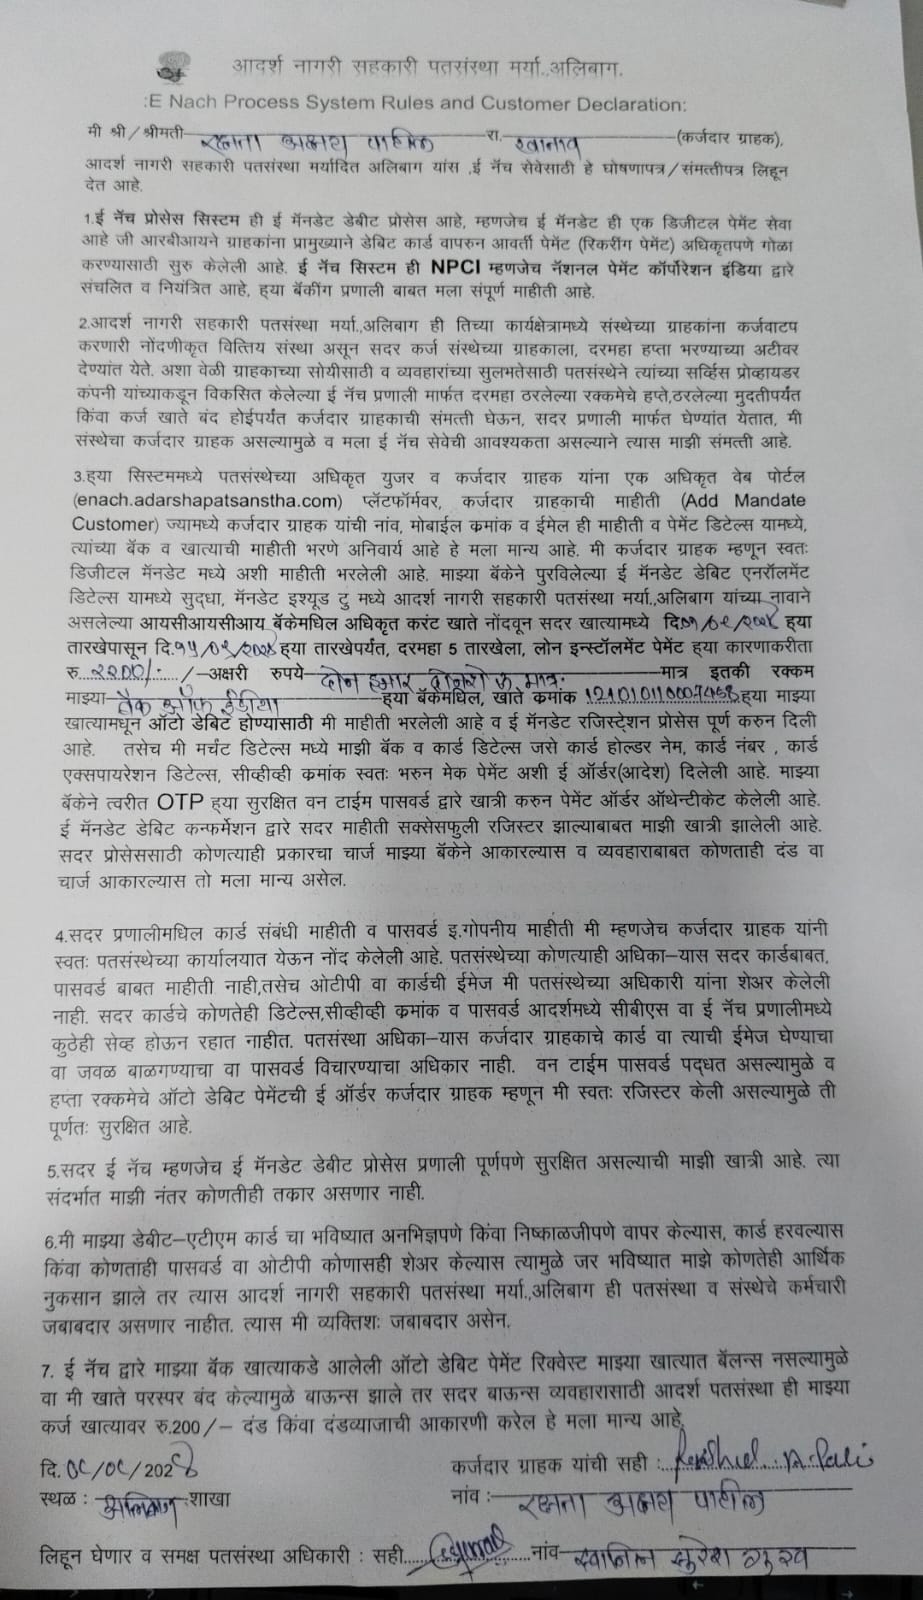 आदर्श नागरी सहकारी पतसंस्था मर्या.,अलिबाग.
:E Nach Process System Rules and Customer Declaration:
मी श्री/श्रीमती रक्षता अक्षय पाटील रा. खानाव (कर्जदार ग्राहक),
आदर्श नागरी सहकारी पतसंस्था मर्यादित अलिबाग यांस ,ई नॅच सेवेसाठी हे घोषणापत्र/संमत्तीपत्र लिहून
देत आहे.
1.ई नॅच प्रोसेस सिस्टम ही ई मॅनडेट डेबीट प्रोसेस आहे, म्हणजेच ई मॅनडेट ही एक डिजीटल पेमेंट सेवा
आहे जी आरबीआयने ग्राहकांना प्रामुख्याने डेबिट कार्ड वापरुन आवर्ती पेमेंट (रिकरींग पेमेंट) अधिकृतपणे गोळा
करण्यासाठी सुरु केलेली आहे. ई नॅच सिस्टम ही NPCI म्हणजेच नॅशनल पेमेंट कॉर्पोरेशन इंडिया द्वारे
संचलित व नियंत्रित आहे, ह्या बॅकींग प्रणाली बाबत मला संपूर्ण माहीती आहे.
2.आदर्श नागरी सहकारी पतसंस्था मर्या.,अलिबाग ही तिच्या कार्यक्षेत्रामध्ये संस्थेच्या ग्राहकांना कर्जवाटप
करणारी नोंदणीकृत वित्तिय संस्था असून सदर कर्ज संस्थेच्या ग्राहकाला, दरमहा हप्ता भरण्याच्या अटीवर
देण्यांत येते. अशा वेळी ग्राहकाच्या सोयीसाठी व व्यवहारांच्या सुलभतेसाठी पतसंस्थेने त्यांच्या सर्व्हिस प्रोव्हायडर
कंपनी यांच्याकडून विकसित केलेल्या ई नॅच प्रणाली मार्फत दरमहा ठरलेल्या रक्कमेचे हप्ते,ठरलेल्या मुदतीपर्यंत
किंवा कर्ज खाते बंद होईपर्यंत कर्जदार ग्राहकाची संमत्ती घेऊन, सदर प्रणाली मार्फत घेण्यांत येतात, मी
संस्थेचा कर्जदार ग्राहक असल्यामुळे व मला ई नॅच सेवेची आवश्यकता असल्याने त्यास माझी संमत्ती आहे.
3.ह्या सिस्टममध्ये पतसंस्थेच्या अधिकृत युजर व कर्जदार ग्राहक यांना एक अधिकृत वेब पोर्टल
(enach.adarshapatsanstha.com) प्लॅटफॉर्मवर, कर्जदार ग्राहकाची माहीती (Add Mandate
Customer) ज्यामध्ये कर्जदार ग्राहक यांची नांव, मोबाईल क्रमांक व ईमेल ही माहीती व पेमेंट डिटेल्स यामध्ये,
त्यांच्या बॅक व खात्याची माहीती भरणे अनिवार्य आहे हे मला मान्य आहे. मी कर्जदार ग्राहक म्हणून स्वतः
डिजीटल मॅनडेट मध्ये अशी माहीती भरलेली आहे. माझ्या बॅकेने पुरविलेल्या ई मॅनडेट डेबिट एनरॉलमेंट
डिटेल्स यामध्ये सुद्धा, मॅनडेट इश्यूड टु मध्ये आदर्श नागरी सहकारी पतसंस्था मर्या.,अलिबाग यांच्या नावाने
असलेल्या आयसीआयसीआय बॅकेमधिल अधिकृत करंट खाते नोंदवून सदर खात्यामध्ये ह्या
तारखेपासून ह्या तारखेपर्यंत, दरमहा 5 तारखेला, लोन इन्स्टॉलमेंट पेमेंट ह्या कारणाकरीता
रु २२००/- /-अक्षरी रुपये दोन हजार दोनशे रु मात्र. मात्र इतकी रक्कम
माझ्या बँक ऑफ इंडीया ह्या बॅकेमधिल, खाते क्रमांक ह्या माझ्या
खात्यामधून ऑटो डेबिट होण्यासाठी मी माहीती भरलेली आहे व ई मॅनडेट रजिस्ट्रेशन प्रोसेस पूर्ण करुन दिली
आहे. तसेच मी मर्चंट डिटेल्स मध्ये माझी बॅक व कार्ड डिटेल्स जसे कार्ड होल्डर नेम, कार्ड नंबर , कार्ड
एक्सपायरेशन डिटेल्स, सीव्हीव्ही क्रमांक स्वतः भरुन मेक पेमेंट अशी ई ऑर्डर(आदेश) दिलेली आहे. माझ्या
बॅकेने त्वरीत OTP ह्या सुरक्षित वन टाईम पासवर्ड द्वारे खात्री करुन पेमेंट ऑर्डर ऑथेन्टीकेट केलेली आहे.
ई मॅनडेट डेबिट कन्फर्मेशन द्वारे सदर माहीती सक्सेसफुली रजिस्टर झाल्याबाबत माझी खात्री झालेली आहे.
सदर प्रोसेससाठी कोणत्याही प्रकारचा चार्ज माझ्या बॅकेने आकारल्यास व व्यवहाराबाबत कोणताही दंड वा
चार्ज आकारल्यास तो मला मान्य असेल.
4.सदर प्रणालीमधिल कार्ड संबंधी माहीती व पासवर्ड इ.गोपनीय माहीती मी म्हणजेच कर्जदार ग्राहक यांनी
स्वतः पतसंस्थेच्या कार्यालयात येऊन नोंद केलेली आहे. पतसंस्थेच्या कोणत्याही अधिका–यास सदर कार्डबाबत,
पासवर्ड बाबत माहीती नाही,तसेच ओटीपी वा कार्डची ईमेज मी पतसंस्थेच्या अधिकारी यांना शेअर केलेली
नाही. सदर कार्डचे कोणतेही डिटेल्स,सीव्हीव्ही क्रमांक व पासवर्ड आदर्शमध्ये सीबीएस वा ई नॅच प्रणालीमध्ये
कुठेही सेव्ह होऊन रहात नाहीत. पतसंस्था अधिका–यास कर्जदार ग्राहकाचे कार्ड वा त्याची ईमेज घेण्याचा
वा जवळ बाळगण्याचा वा पासवर्ड विचारण्याचा अधिकार नाही. वन टाईम पासवर्ड पद्धत असल्यामुळे व
हप्ता रक्कमेचे ऑटो डेबिट पेमेंटची ई ऑर्डर कर्जदार ग्राहक म्हणून मी स्वतः रजिस्टर केली असल्यामुळे ती
पूर्णतः सुरक्षित आहे.
5.सदर ई नॅच म्हणजेच ई मॅनडेट डेबीट प्रोसेस प्रणाली पूर्णपणे सुरक्षित असल्याची माझी खात्री आहे. त्या
संदर्भात माझी नंतर कोणतीही तकार असणार नाही.
6.मी माझ्या डेबीट–एटीएम कार्ड चा भविष्यात अनभिज्ञपणे किंवा निष्काळजीपणे वापर केल्यास, कार्ड हरवल्यास
किंवा कोणताही पासवर्ड वा ओटीपी कोणासही शेअर केल्यास त्यामुळे जर भविष्यात माझे कोणतेही आर्थिक
नुकसान झाले तर त्यास आदर्श नागरी सहकारी पतसंस्था मर्या.,अलिबाग ही पतसंस्था व संस्थेचे कर्मचारी
जबाबदार असणार नाहीत. त्यास मी व्यक्तिशः जबाबदार असेन.
7. ई नॅच द्वारे माझ्या बॅक खात्याकडे आलेली ऑटो डेबिट पेमेंट रिक्वेस्ट माझ्या खात्यात बॅलन्स नसल्यामुळे
वा मी खाते परस्पर बंद केल्यामुळे बाऊन्स झाले तर सदर बाऊन्स व्यवहारासाठी आदर्श पतसंस्था ही माझ्या
कर्ज खात्यावर रु.200/– दंड किंवा दंडव्याजाची आकारणी करेल हे मला मान्य आहे.
दि. कर्जदार ग्राहक यांची सही :
स्थळ : अलिबाग शाखा नांव : रक्षता अक्षय पाटील
लिहून घेणार व समक्ष पतसंस्था अधिकारी : सही नांव स्वप्नील सुरेश गुरव